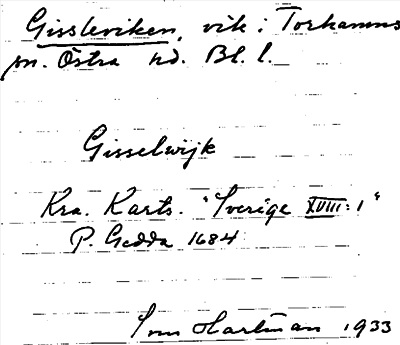 Gissleviken, vik i Torhamns
sn. Östra hd. Bl. l.
Gisselwijk
Kra. Karts. "Sverige XVIII:1"
P. Gedda 1684
Hartman 1933